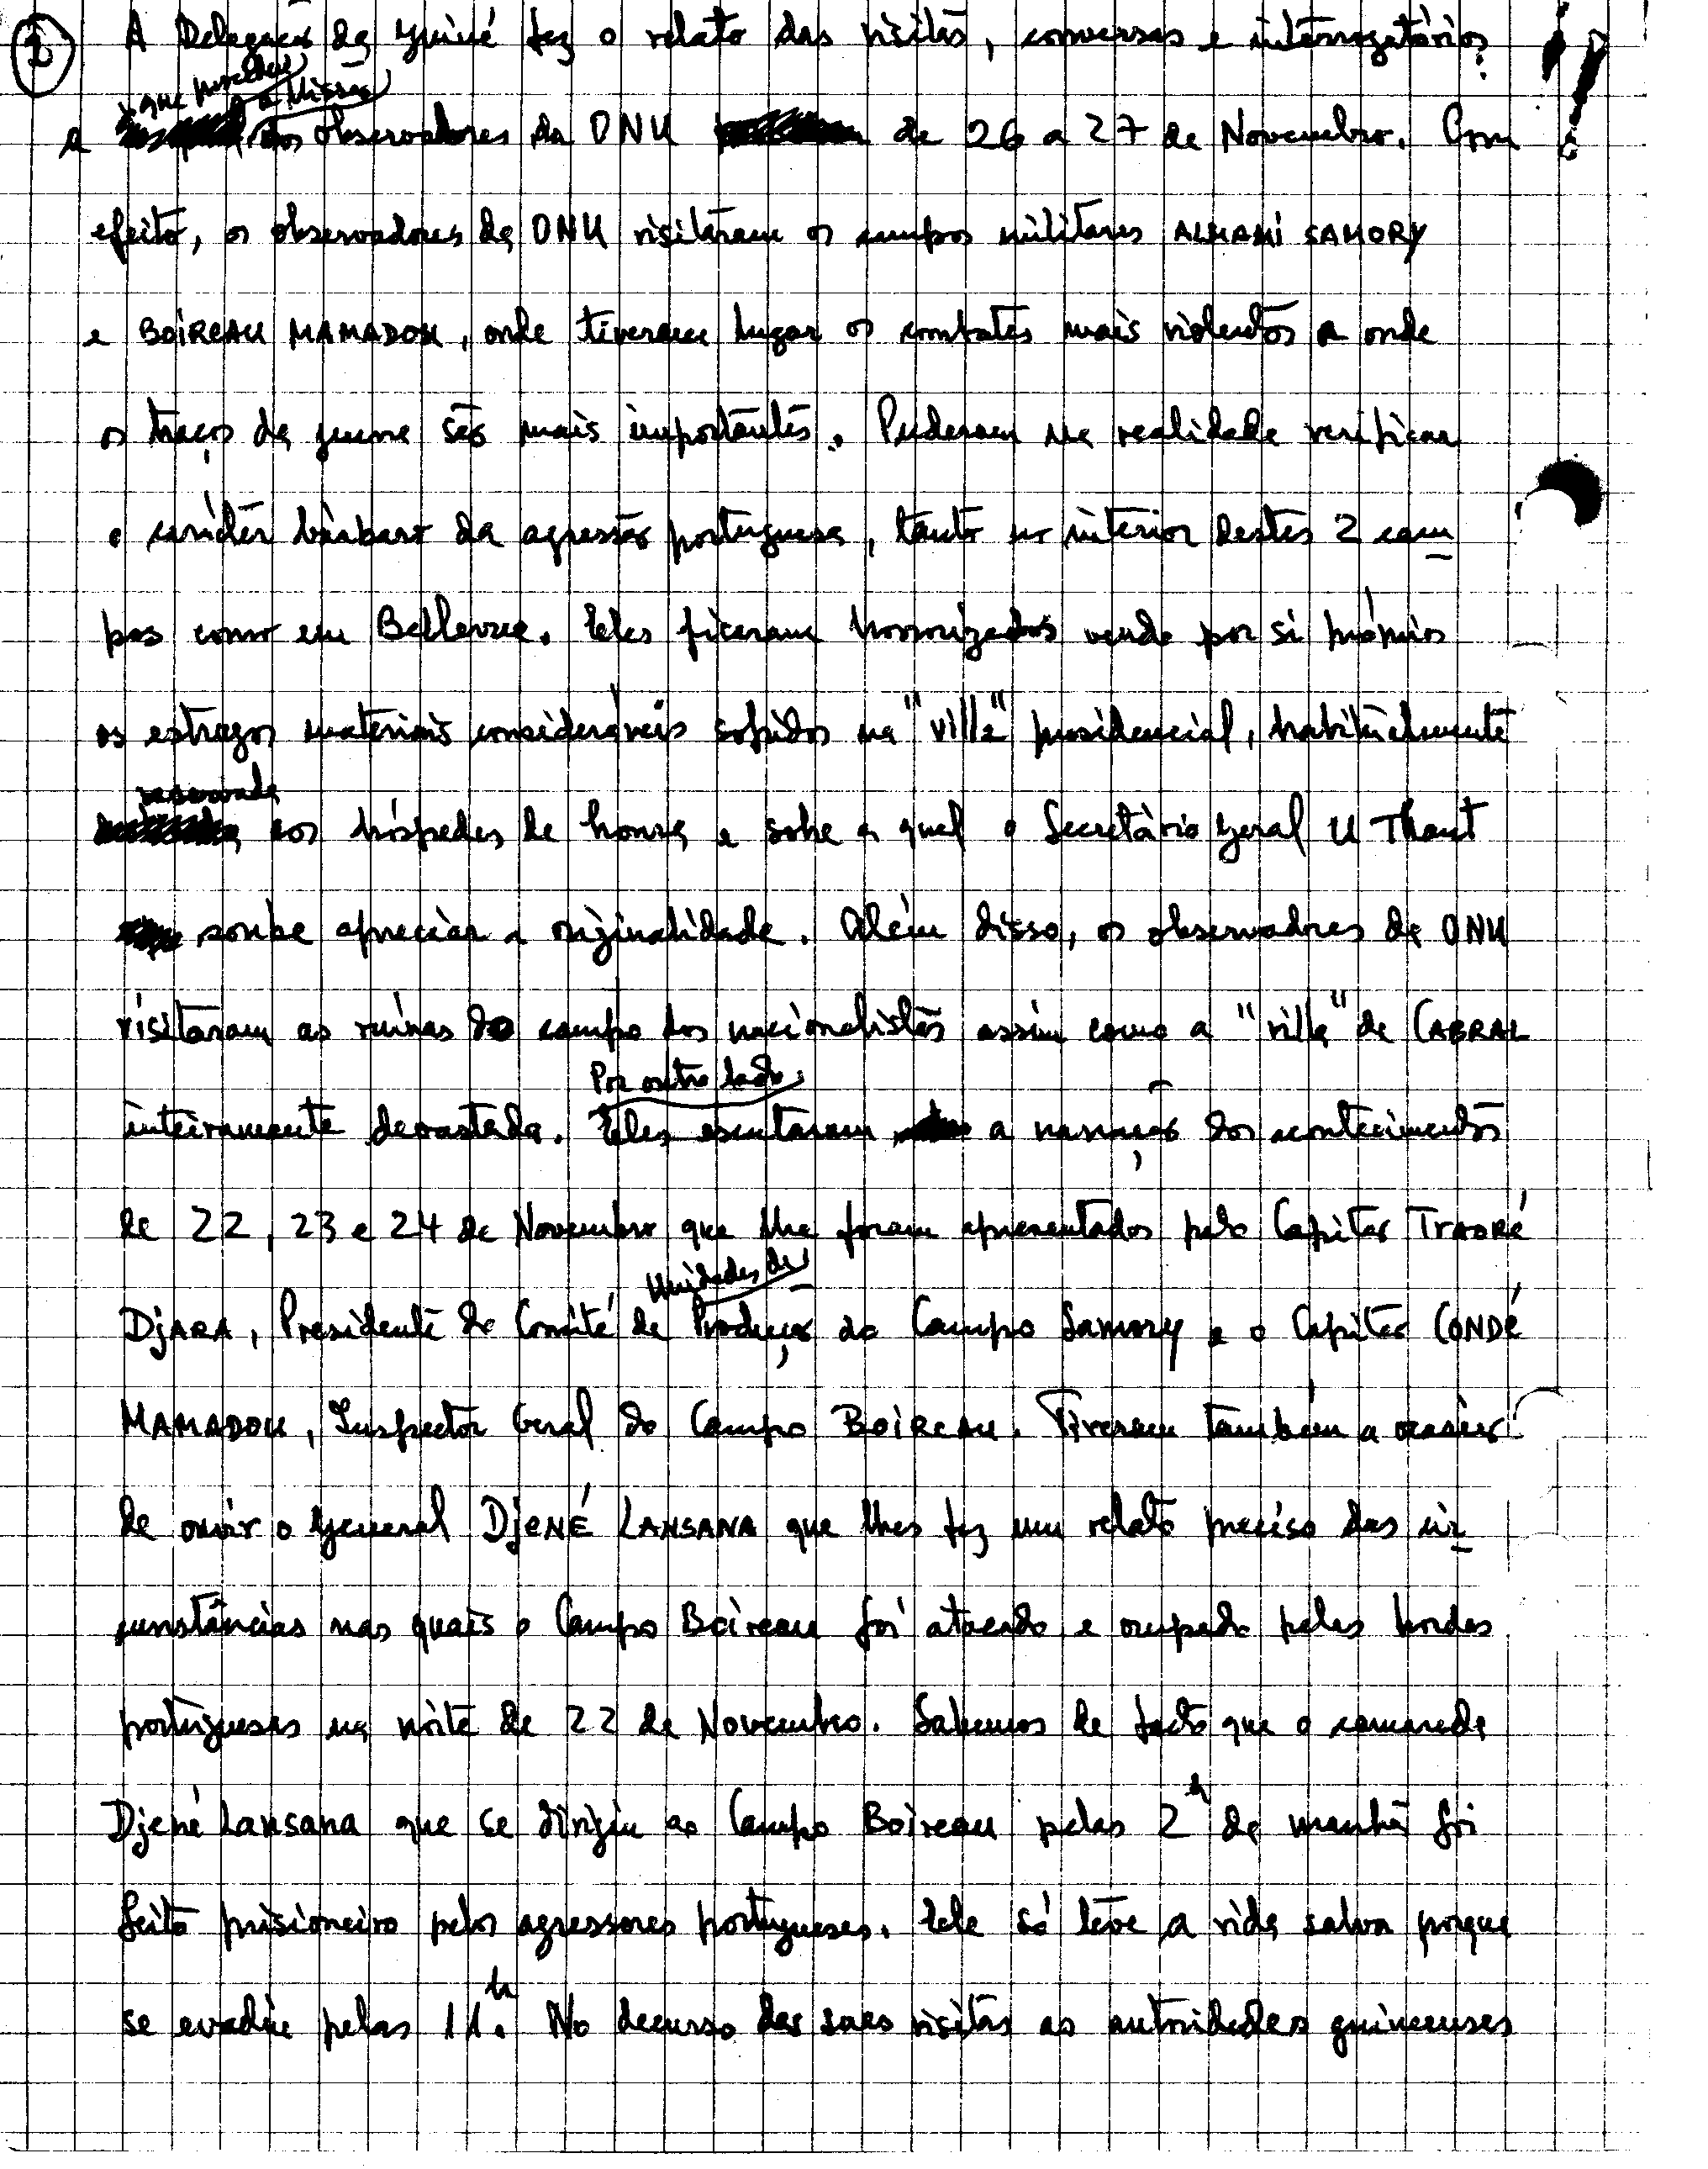 2
A Delegação da Guiné fez o relato das visitas, conversas e interrogatórios
que procedeu a Missão
a dos observadores da ONU de 26 a 27 de Novembro. Com
efeito, os observadores da ONU visitaram os campos militares ALMAMI SAMORY
e BOIREAU MAMADOU, onde tiveram lugar os combates mais violentos e onde
os traços da guerra são mais importantes. Puderam na realidade verificar
o carácter bárbaro da agressão portuguesa, tanto no interior destes 2 cam
pos como em Bellevue. Eles ficaram horrorizados vendo por si próprios
os estragos materiais consideráveis sofridos na "villa" presidencial, habitualmente
reservada
aos hóspedes de honra e sobre a qual o Secretário Geral U Thant
soube apreciar a originalidade. Além disso, os observadores da ONU
visitaram as ruínas do campo dos nacionalistas assim como a "villa" de CABRAL
Por outro lado,
inteiramente devastada. Eles escutaram a narração dos acontecimentos
de 22, 23 e 24 de Novembro que lhe foram apresentados pelo Capitão TRAORÉ
Unidades de
DJARA, Presidente do Comité de Produção do Campo Samory e o Capitão CONDÉ
MAMADOU, Inspector Geral do Campo BOIREAU. Tiveram também a ocasião
de ouvir o General DJENÉ LANSANA que lhes fez um relato preciso das cir
cunstâncias nas quais o Campo Boireau foi atacado e ocupado pelas hordas
portuguesas na noite de 22 de Novembro. Sabemos de facto que o camarada
Djené Lansana que se dirigiu ao Campo Boireau pelas 2h da manhã foi
feito prisioneiro pelos agressores portugueses. Ele só teve a vida salva porque
se evadiu pelas 11h. No decurso das suas visitas as autoridades guineenses